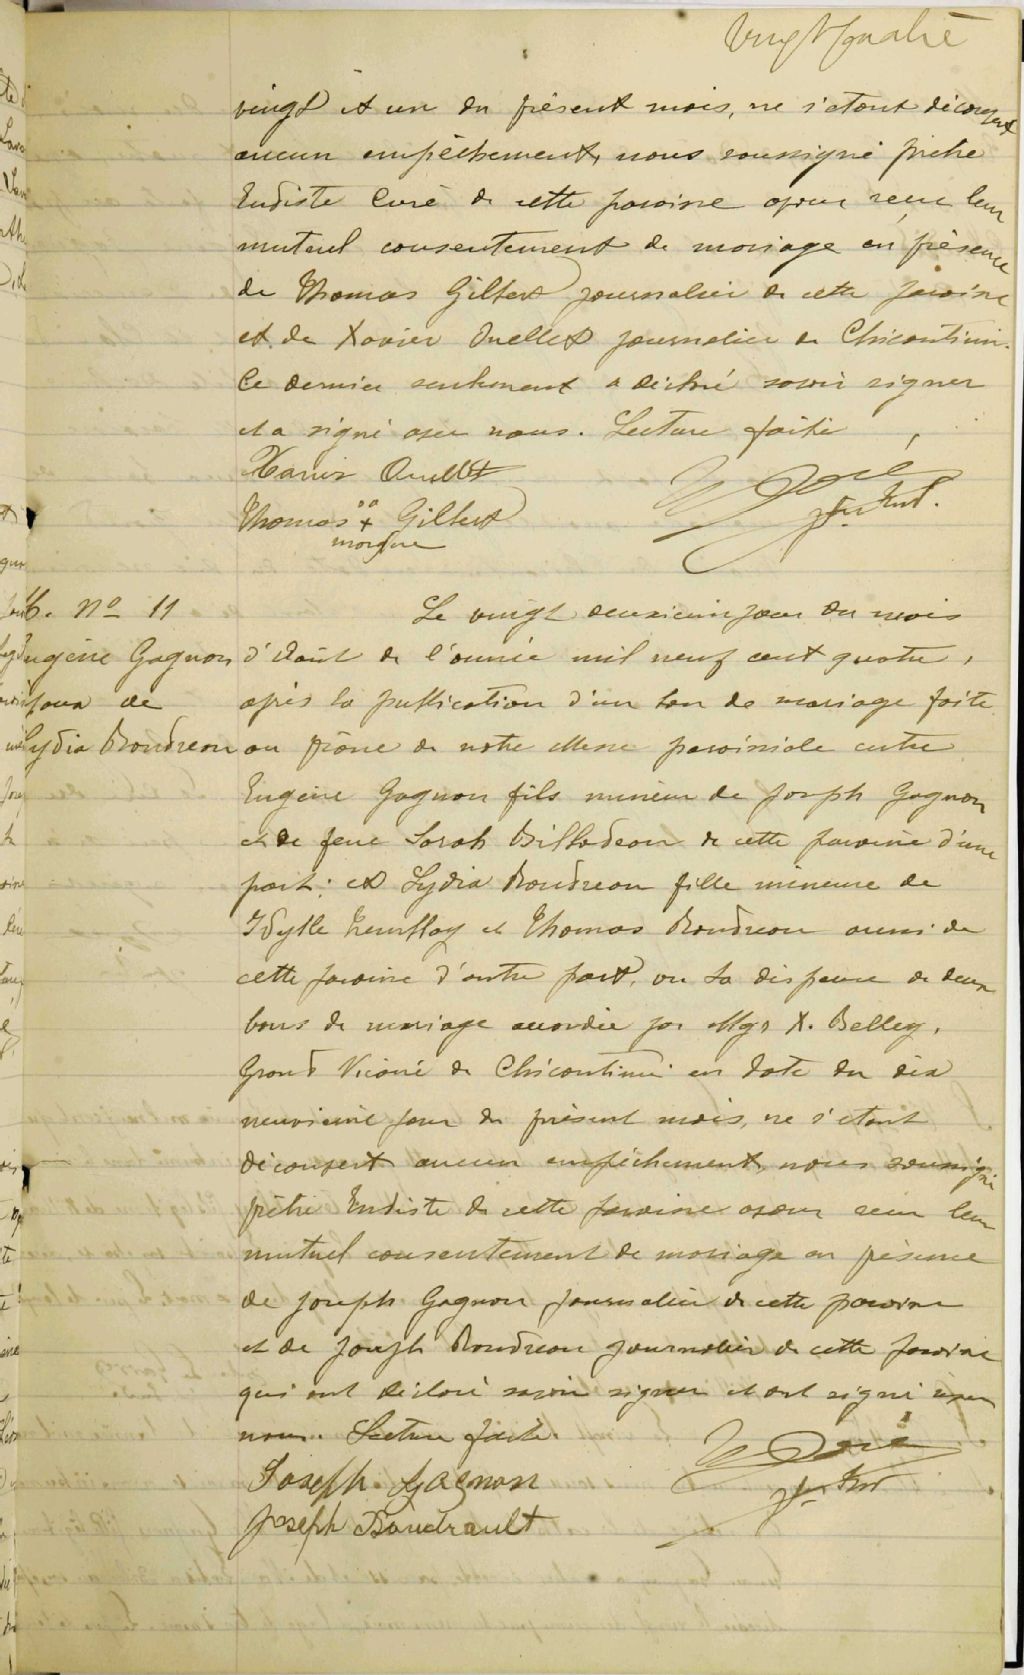 Vingt quatre
vingt et un du présent mois, ne s'étant découvert
aucun empêchement, nous soussigné prêtre
Eudiste Curé de cette paroisse avons reçu leur
mutuel consentement de mariage en présence
de Thomas Gilbert journalier de cette paroisse
et de Xavier Ouellet journalier de Chicoutimi.
Ce dernier seulement a déclaré savoir signer
et a signé avec nous. Lecture faite
Xavier Ouellet
Thomas + Gilbert
marque
Ptr. Eud.
M. No 11
Eugène Gagnon
époux de
Lydia Boudreau
Le vingt deuxième jour du mois
d'Août de l'année mil neuf cent quatre,
après la publication d'un ban de mariage faite
au prône de notre Messe paroissiale entre
Eugène Gagnon fils mineur de Joseph Gagnon
et de feue Sarah Billodeau de cette paroisse d'une
part; et Lydia Boudreau fille mineure de
Tremblay et Thomas Boudreau aussi de
cette paroisse d'autre part, vu la dispense de deux
bans de mariage accordée par Mgr X. Belley,
Grand Vicaire de Chicoutimi en date du dix
neuvième jour du présent mois, ne s'étant
découvert aucun empêchement, nous soussigné
prêtre Eudiste de cette paroisse avons reçu leur
mutuel consentement de mariage en présence
de Joseph Gagnon journalier de cette paroisse
et de Joseph Boudreau journalier de cette paroisse
qui ont déclaré savoir signer et ont signé avec
nous. Lecture faite.
Joseph Gagnon
Joseph Boudreault
Ptr Eud